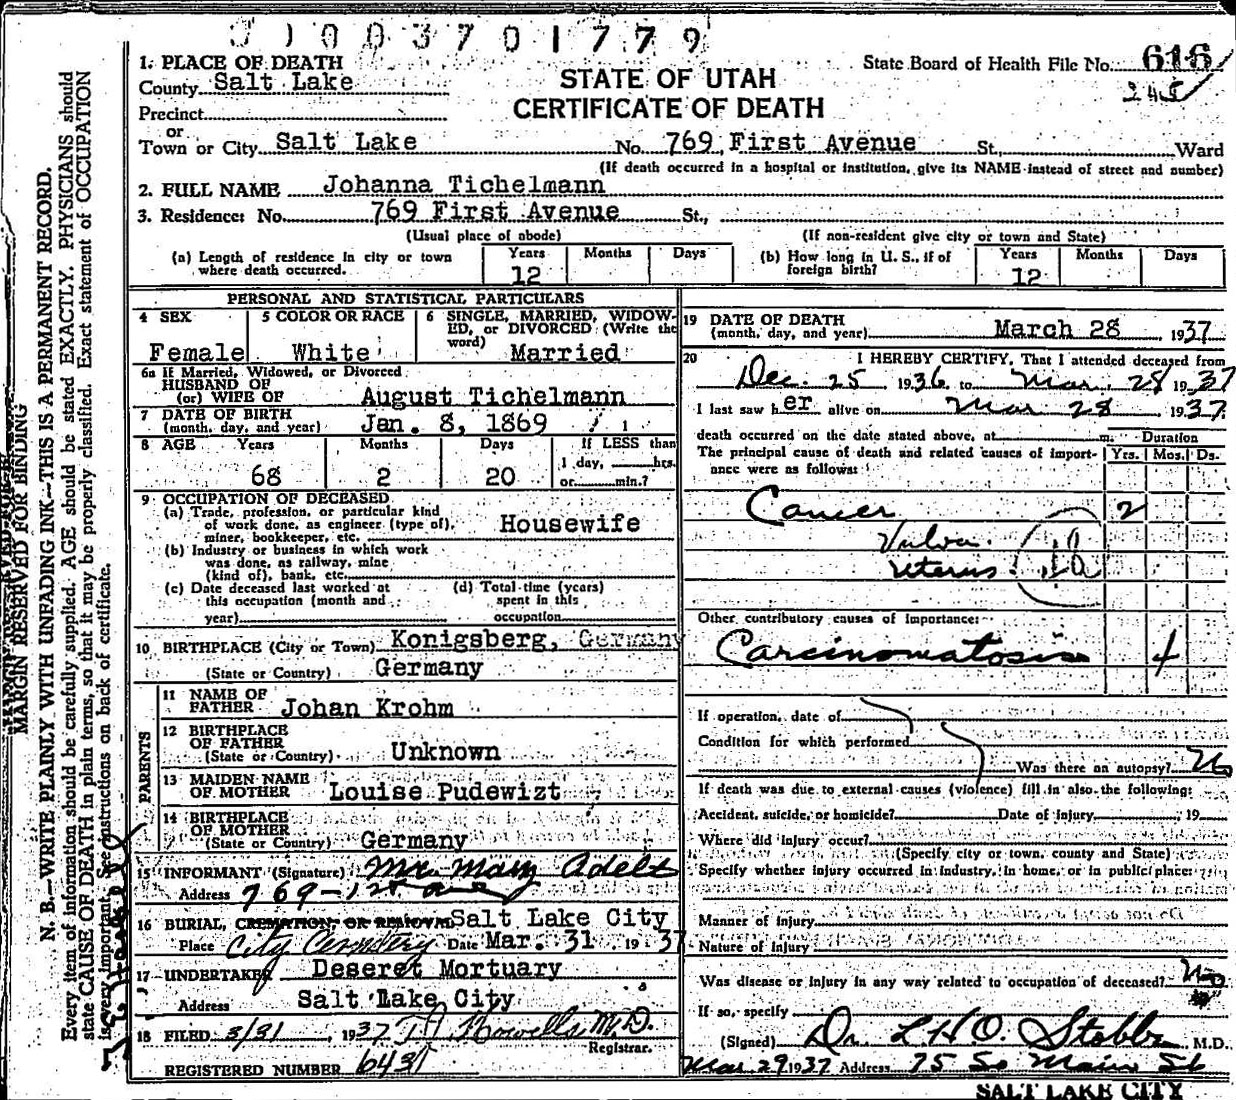 1003701779
1. PLACE OF DEATH
County Salt Lake
STATE OF UTAH
CERTIFICATE OF DEATH
State Board of Health File No. 616
245
Precinct
or
Town or City Salt Lake No. 769 First Avenue St., Ward
(If death occurred in a hospital or institution, give its NAME instead of street and number)
2. FULL NAME Johanna Tichelmann
3. Residence: No. 769 First Avenue St.,
(Usual place of abode) (If non-resident give city or town and State)
(a) Length of residence in city or town where death occurred. Years 12 Months Days
(b) How long in U. S., if of foreign birth? Years 12 Months Days
PERSONAL AND STATISTICAL PARTICULARS
4 SEX Female
5 COLOR OR RACE White
6 SINGLE, MARRIED, WIDOWED, or DIVORCED (Write the word) Married
6a If Married, Widowed, or Divorced
HUSBAND OF
(or) WIFE OF August Tichelmann
7 DATE OF BIRTH
(month, day, and year) Jan. 8, 1869
8 AGE Years 68 Months 2 Days 20 If LESS than 1 day, hrs. or min.?
9 OCCUPATION OF DECEASED
(a) Trade, profession, or particular kind of work done, as engineer (type of), miner, bookkeeper, etc. Housewife
(b) Industry or business in which work was done, as railway, mine (kind of), bank, etc.
(c) Date deceased last worked at this occupation (month and year)
(d) Total time (years) spent in this occupation
10 BIRTHPLACE (City or Town) Konigsberg, Germany
(State or Country) Germany
PARENTS
11 NAME OF FATHER Johan Krohm
12 BIRTHPLACE OF FATHER
(State or Country) Unknown
13 MAIDEN NAME OF MOTHER Louise Pudewizt
14 BIRTHPLACE OF MOTHER
(State or Country) Germany
15 INFORMANT (Signature) Mrs. Mary Adelt
Address 769-1st ave
16 BURIAL, CREMATION, OR REMOVAL Salt Lake City
Place City Cemetery Date Mar. 31 1937
17 UNDERTAKER Deseret Mortuary
Address Salt Lake City
18 FILED 3/31, 1937 Howells M.D.
Registrar.
REGISTERED NUMBER 6431
19 DATE OF DEATH
(month, day, and year) March 28 1937
20 I HEREBY CERTIFY, That I attended deceased from
Dec. 25, 1936 to Mar. 28 1937
I last saw her alive on Mar 28 1937
death occurred on the date stated above, at m. Duration
The principal cause of death and related causes of importance were as follows: Yrs. Mos. Ds.
Cancer 2
Vulva
uterus.
Other contributory causes of importance:
Carcinomatosis 4
If operation, date of
Condition for which performed
Was there an autopsy? No
If death was due to external causes (violence) fill in also the following:
Accident, suicide, or homicide? Date of Injury 19
Where did injury occur?
(Specify city or town, county and State)
Specify whether injury occurred in industry, in home, or in public place:
Manner of Injury
Nature of Injury
Was disease or injury in any way related to occupation of deceased? No
If so, specify
(Signed) Dr. L H O. Stobbe, M.D.
Mar 29 1937 Address 75 So Main St
SALT LAKE CITY
MARGIN RESERVED FOR BINDING
N. B.—WRITE PLAINLY WITH UNFADING INK—THIS IS A PERMANENT RECORD.
Every item of information should be carefully supplied. AGE should be stated EXACTLY. PHYSICIANS should
state CAUSE OF DEATH in plain terms, so that it may be properly classified. Exact statement of OCCUPATION
is very important. See instructions on back of certificate.